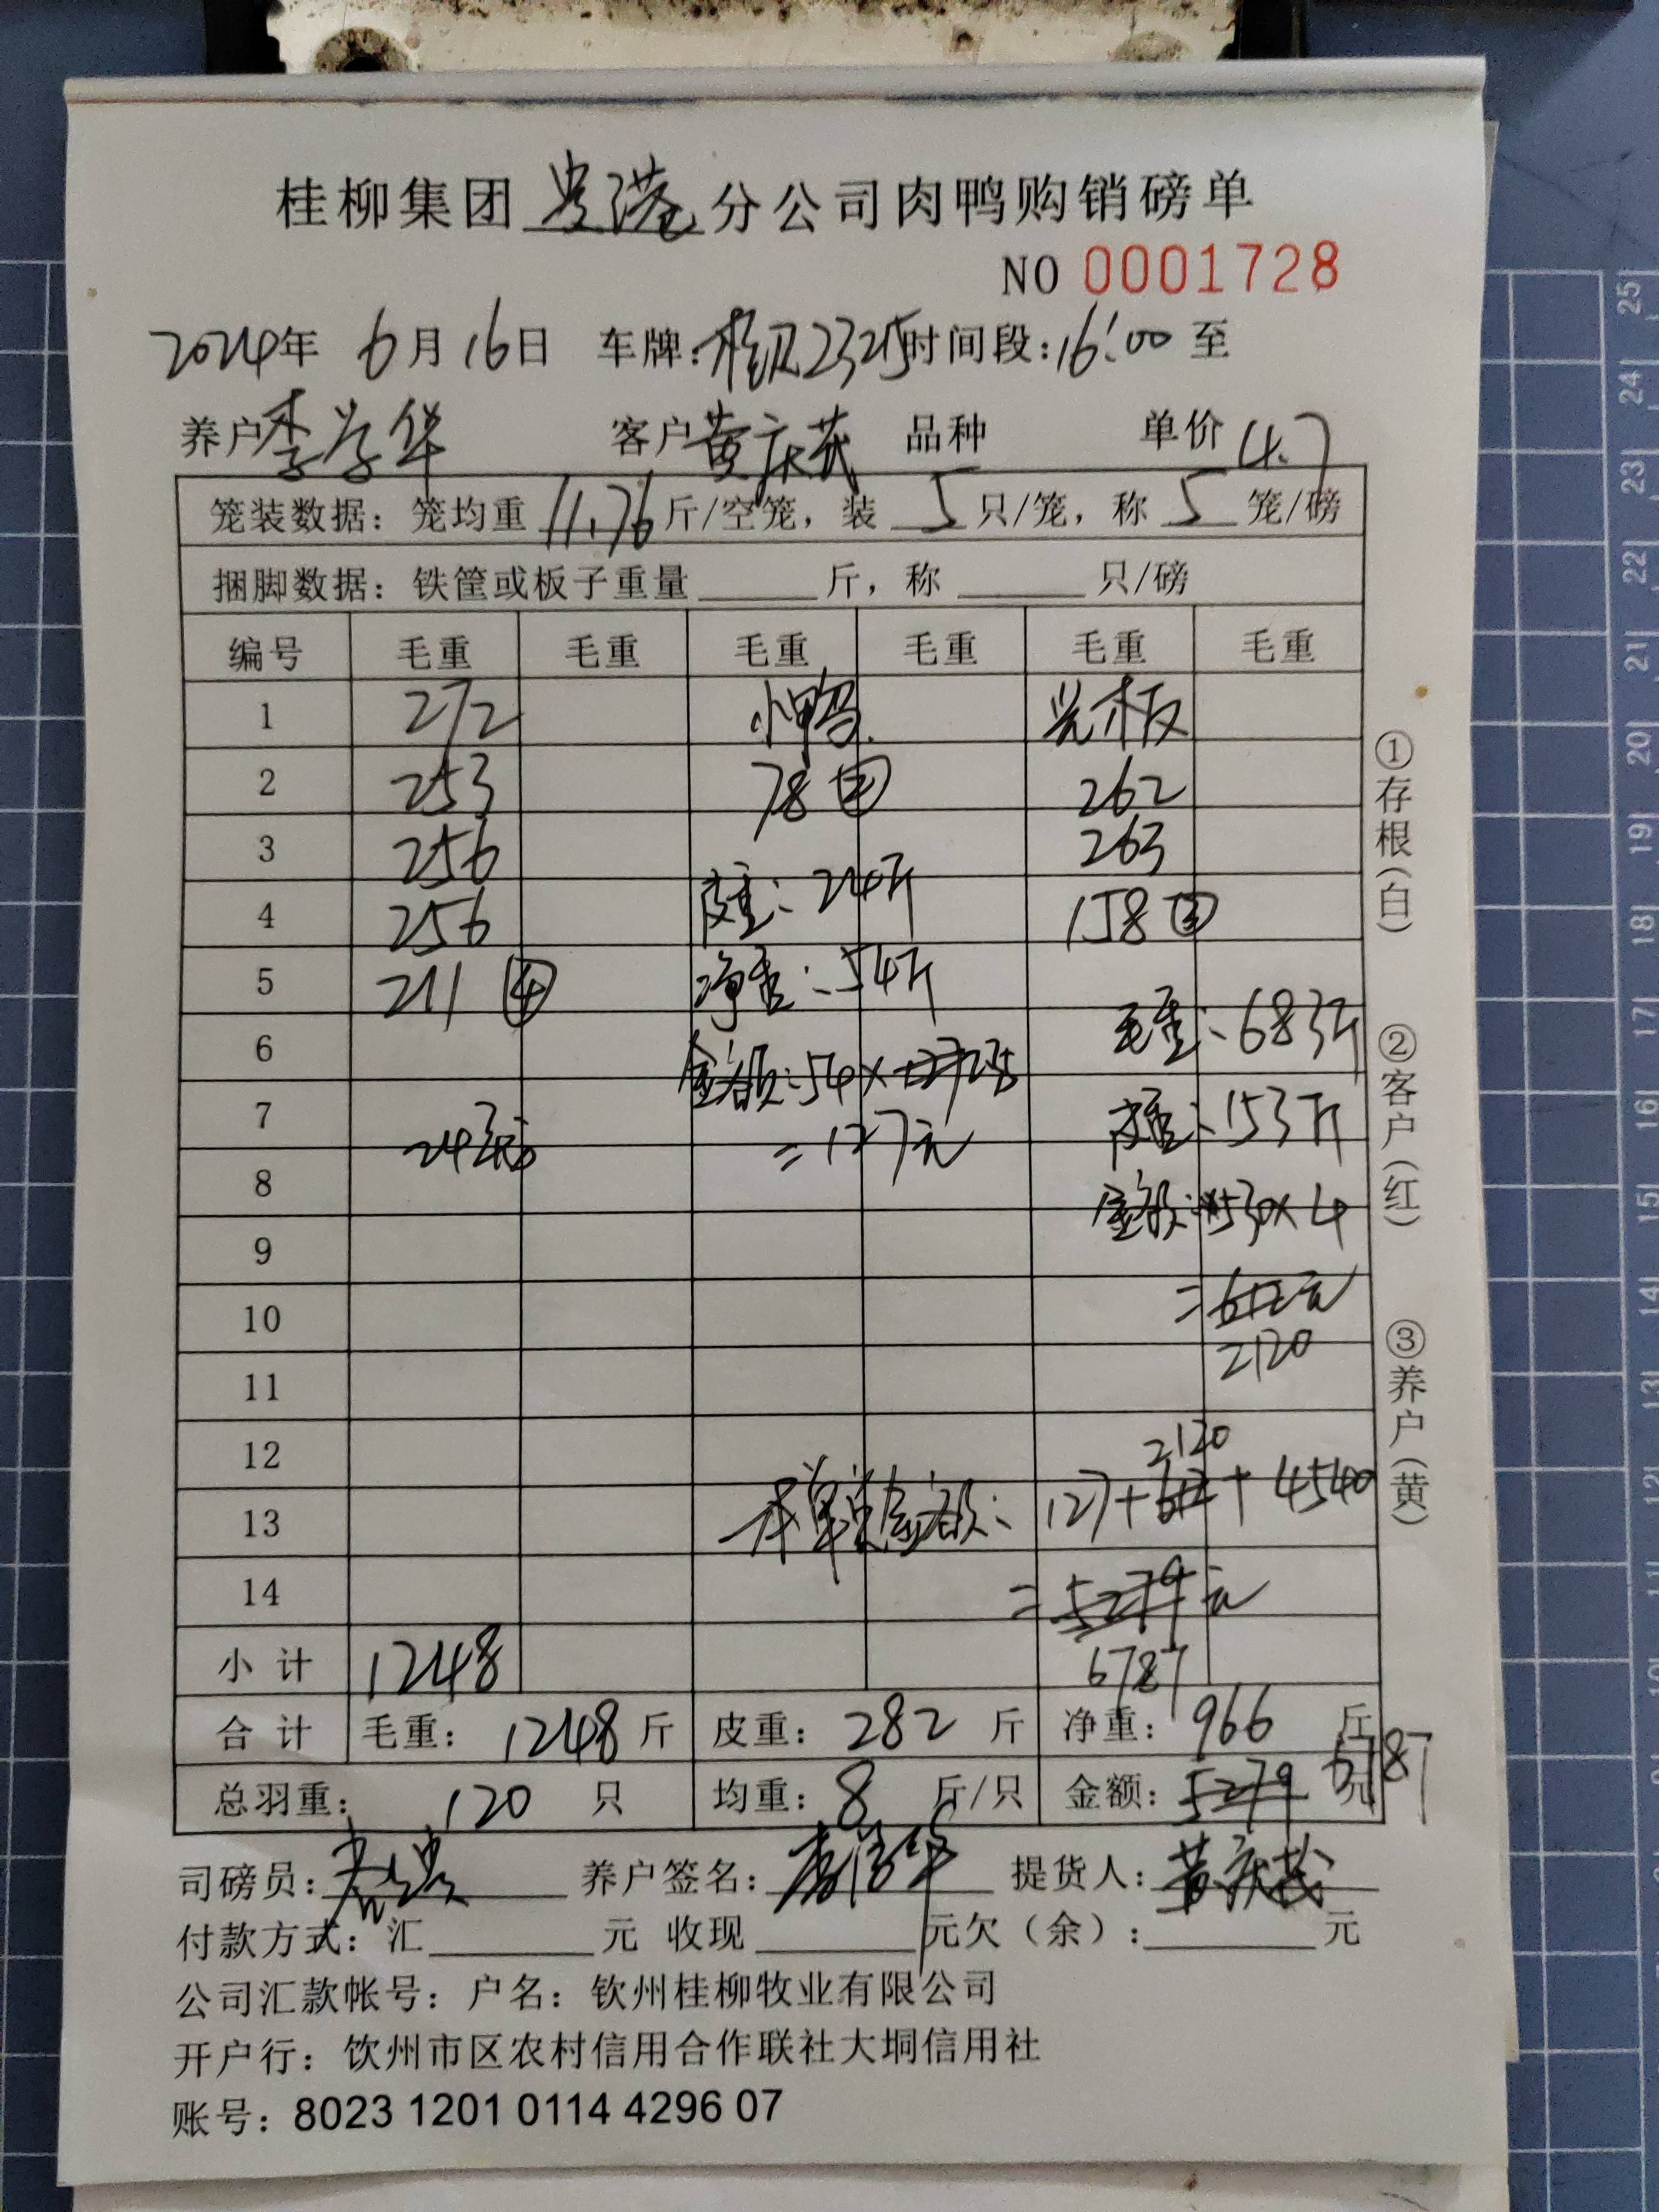 桂柳集团贵港分公司肉鸭购销磅单
NO 0001728
2024年 6月16日 车牌:桂R2325时间段:16:00 至
养户李学华 客户黄庆茂 品种 单价 4.7
笼装数据: 笼均重 11.76 斤/空笼, 装 5 只/笼, 称 5 笼/磅
捆脚数据: 铁筐或板子重量 斤, 称 只/磅
编号 毛重 毛重 毛重 毛重 毛重 毛重
1 272 小鸭 光板
2 253 78② 262
3 256 263
4 256 皮重:24斤 158③
5 211④ 净重:54斤
6 金额:54× 毛重:683斤
7 24 =127元 皮重:153斤
8 金额:530×4
9
10 =612元
2120
11
12 2120
13 本单总金额:127+612+4540
14 =5279元
小计 1248 6787
合计 毛重: 1248 斤 皮重: 282 斤 净重: 966 斤
总羽重: 120 只 均重: 8 斤/只 金额: 5279 元 6787
司磅员: 养户签名:李学华 提货人:黄庆茂
付款方式: 汇 元 收现 元欠(余): 元
公司汇款帐号: 户名: 钦州桂柳牧业有限公司
开户行: 钦州市区农村信用合作联社大垌信用社
账号: 8023 1201 0114 4296 07
①存根(白)
②客户(红)
③养户(黄)
25
24
23
22
21
20
19
18
17
16
15
14
13
12
11
10